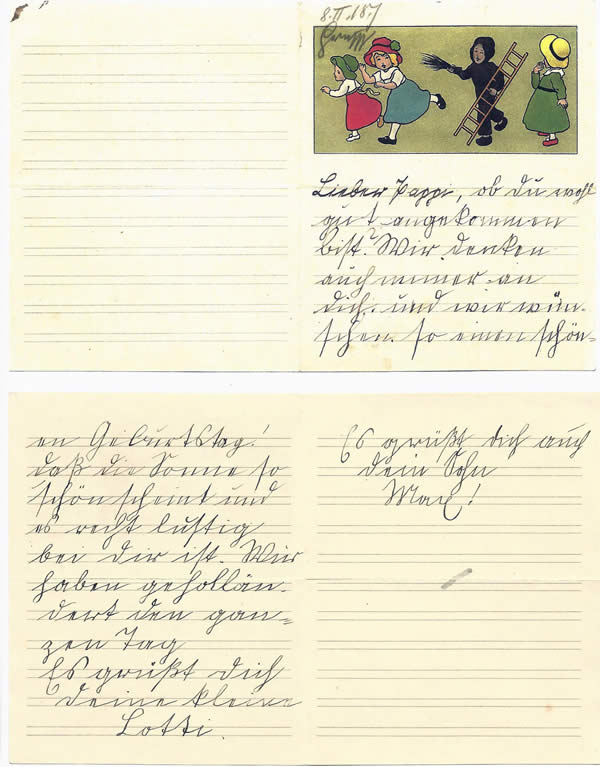 8. II. 18.
Lieber Pappi, ob du wohl
gut angekommen
bist? Wir denken
auch immer an
dich. und wir wün-
schen so einen schön-
en Geburtstag!
daß die Sonne so
schön scheint und
es recht lustig
bei dir ist. Wir
haben gehollän-
dert den gan-
zen Tag
Es grüßt dich
deine kleine
Lotti.
Es grüßt dich auch
dein Sohn
Max!